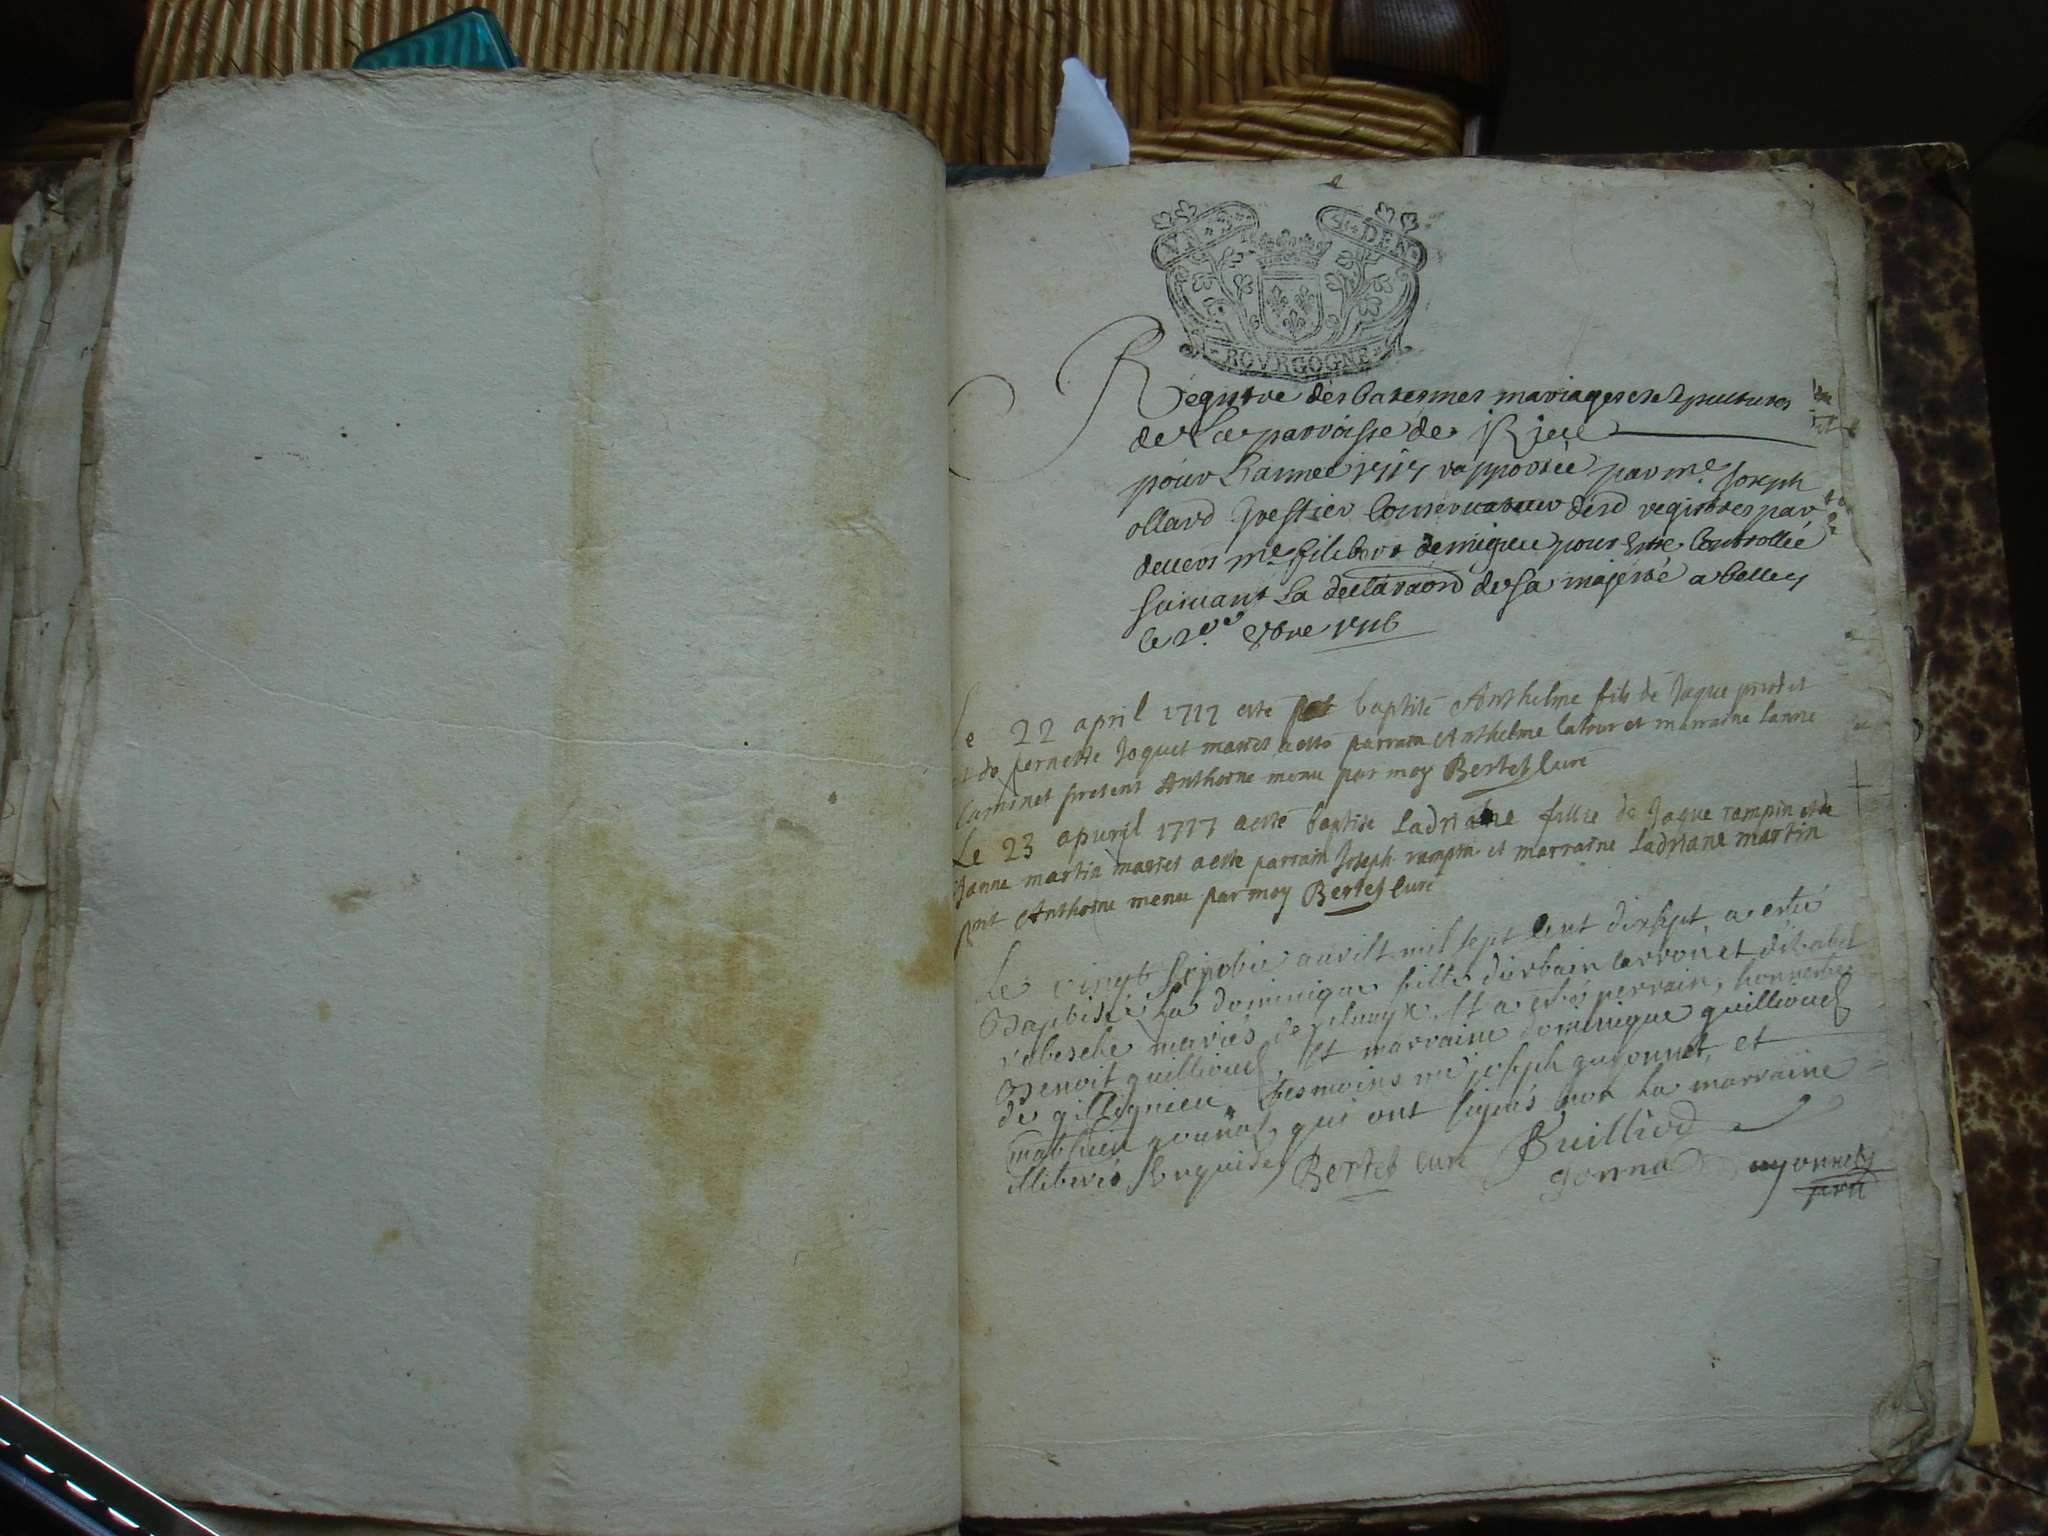 4 DEN
BOVRGOGNE
Registre des batesmes mariages et sepultures
de La parroisse de
pour Lannee 1717 rapportée par me Joseph
ollard greffier Conservateur desd registres par
devers me filibert demigieu pour Estre Controllée
suivant La declaraon de sa majesté a belley
le 2e xbre 1716
Le 22 april 1717 esté baptisé Anthelme fils de Jaque
et de pernette Joquet mariés a esté parrain Anthelme et marraine Janne
present Anthoine menu par moy Bertet Curé
Le 23 apvril 1717 a esté baptisé Ladriane fillie de Jaque rampin et de
Janne martin mariés a esté parrain Joseph rampin et marraine Ladriane martin
pnt Anthoine menu par moy Bertet Curé
Le vingt avrilt mil sept cent dixsept a esté
Baptisée La dominique fille d'urbain et
mariés de Et a esté perrain, honneste
Benoit guillioud, Et marraine dominique guillioud
de tesmoins me joseph guyonnet, et
mathieu qui ont signés non La marraine
illiterés Enquis
Bertet curé
guyonnet